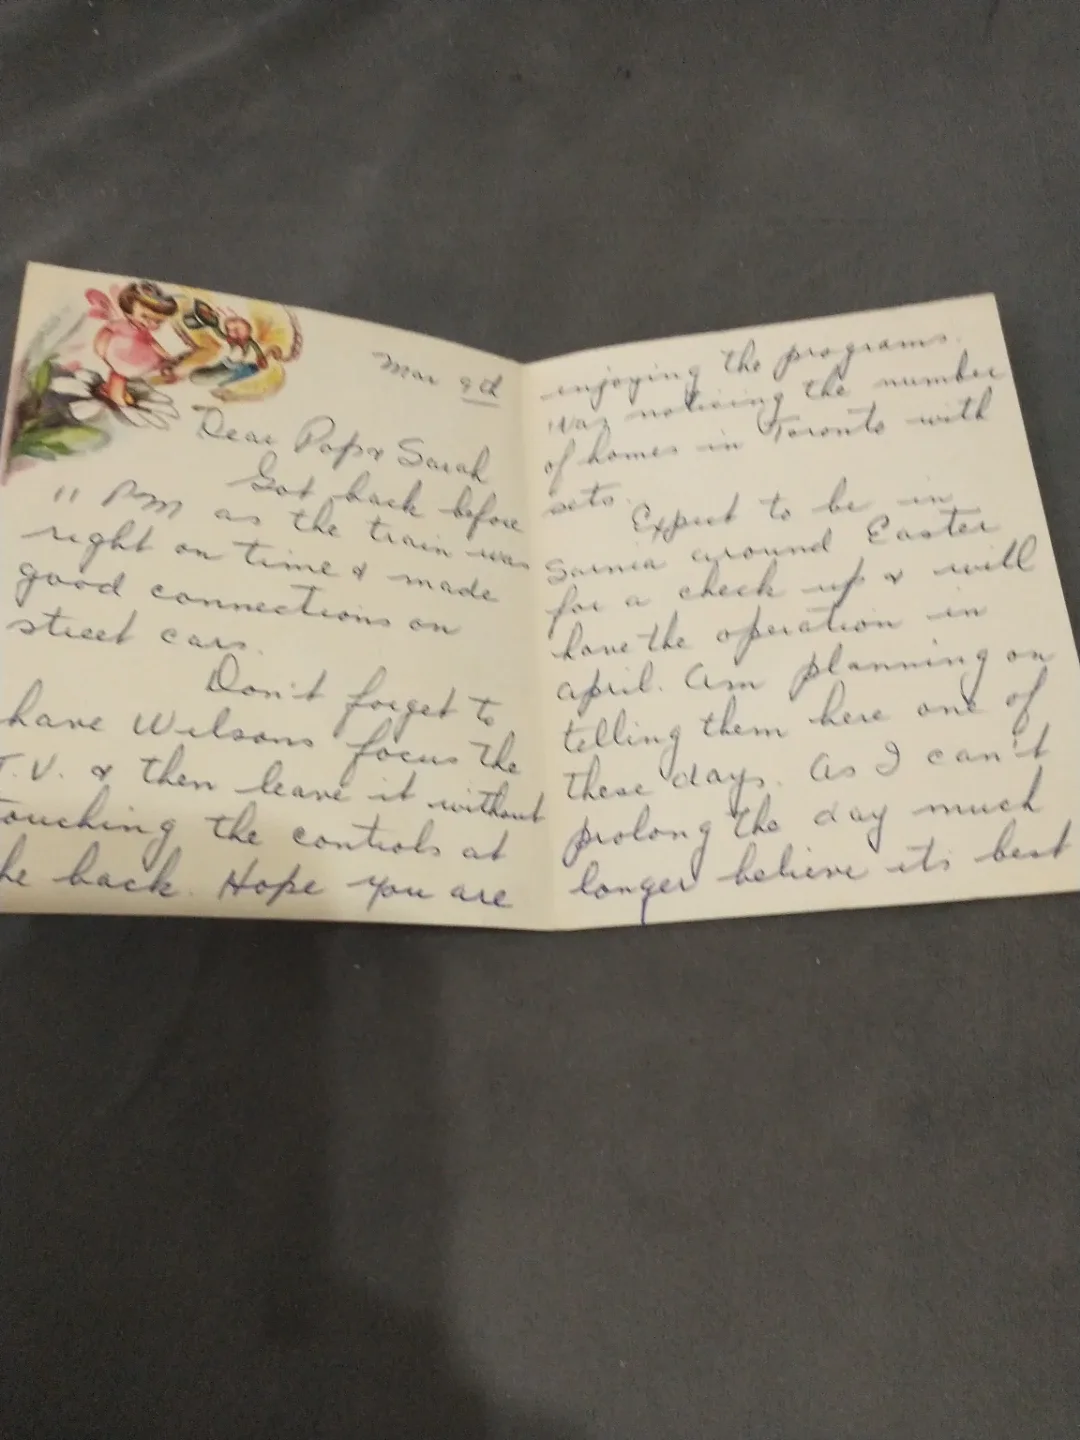 Mar 9th
Dear Pop & Sarah
Got back before
11 PM as the train was
right on time & made
good connections on
street cars.
Don't forget to
have Wilsons focus the
T.V. & then leave it without
touching the controls at
he back. Hope you are
enjoying the programs.
Was noticing the number
of homes in Toronto with
sets.
Expect to be in
Sarnia around Easter
for a check up & will
have the operation in
april. Am planning on
telling them here one of
these days. As I can't
prolong the day much
longer believe its best